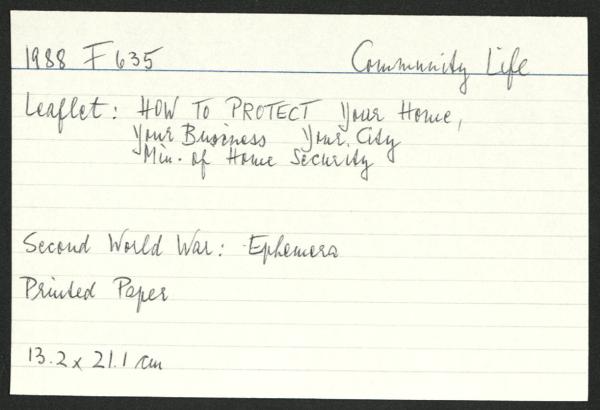 1988 F 635 Community Life
Leaflet: HOW TO PROTECT Your Home,
Your Business Your City
Min. of Home Security
Second World War: Ephemera
Printed Paper
13.2 x 21.1 cm